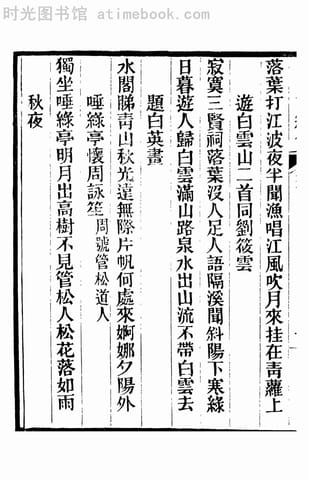 时光图书馆 - atimebook.com
落葉打江波夜半聞漁唱江風吹月來挂在靑蘿上
遊白雲山二首同劉筱雲
寂寞三賢祠落葉沒人足人語隔溪聞斜陽下寒綠
日暮遊人歸白雲滿山路泉水出山流不帶白雲去
題白英畫
水閣睇靑山秋光遠無際片帆何處來婀娜夕陽外
唾綠亭懷周詠笙周號管松道人
獨坐唾綠亭明月出高樹不見管松人松花落如雨
秋夜